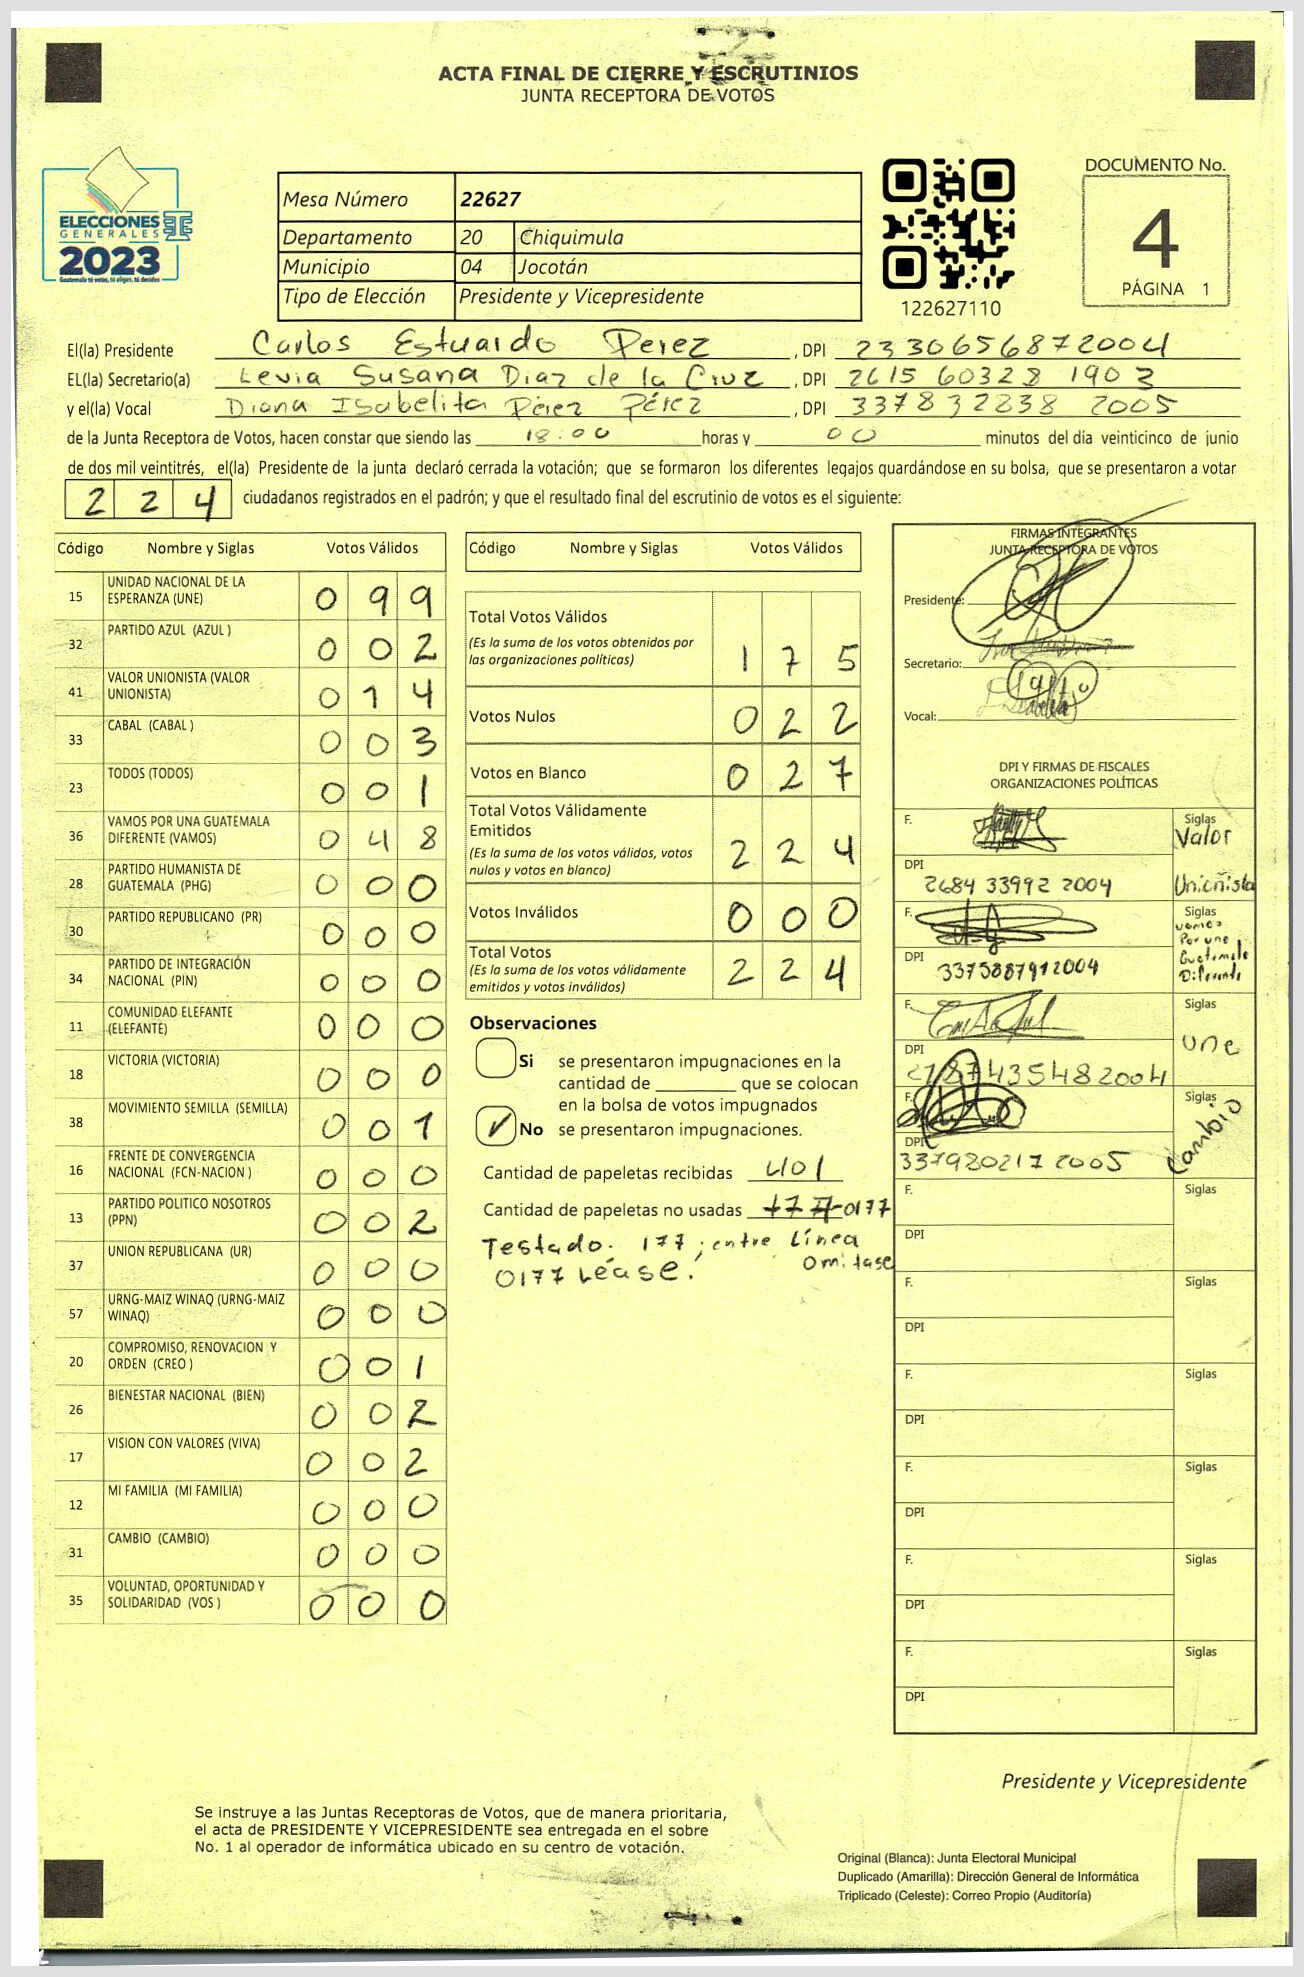 ACTA FINAL DE CIERRE Y ESCRUTINIOS
JUNTA RECEPTORA DE VOTOS
ELECCIONES
GENERALES
2023
Mesa Número 22627
Departamento 20 Chiquimula
Municipio 04 Jocotán
Tipo de Elección Presidente y Vicepresidente
122627110
DOCUMENTO No.
4
PÁGINA 1
El(la) Presidente Carlos Estuardo Perez , DPI 2330656872004
EL(la) Secretario(a) Levia Susana Diaz de la Cruz , DPI 2615 60328 1903
y el(la) Vocal Diana Isabelita Pérez Pérez , DPI 337832838 2005
de la Junta Receptora de Votos, hacen constar que siendo las 18:00 horas y 00 minutos del día veinticinco de junio
de dos mil veintitrés, el(la) Presidente de la junta declaró cerrada la votación; que se formaron los diferentes legajos guardándose en su bolsa, que se presentaron a votar
2 2 4 ciudadanos registrados en el padrón; y que el resultado final del escrutinio de votos es el siguiente:
Código Nombre y Siglas Votos Válidos
15 UNIDAD NACIONAL DE LA ESPERANZA (UNE) 0 9 9
32 PARTIDO AZUL (AZUL ) 0 0 2
41 VALOR UNIONISTA (VALOR UNIONISTA) 0 1 4
33 CABAL (CABAL ) 0 0 3
23 TODOS (TODOS) 0 0 1
36 VAMOS POR UNA GUATEMALA DIFERENTE (VAMOS) 0 4 8
28 PARTIDO HUMANISTA DE GUATEMALA (PHG) 0 0 0
30 PARTIDO REPUBLICANO (PR) 0 0 0
34 PARTIDO DE INTEGRACIÓN NACIONAL (PIN) 0 0 0
11 COMUNIDAD ELEFANTE (ELEFANTE) 0 0 0
18 VICTORIA (VICTORIA) 0 0 0
38 MOVIMIENTO SEMILLA (SEMILLA) 0 0 1
16 FRENTE DE CONVERGENCIA NACIONAL (FCN-NACION ) 0 0 0
13 PARTIDO POLITICO NOSOTROS (PPN) 0 0 2
37 UNION REPUBLICANA (UR) 0 0 0
57 URNG-MAIZ WINAQ (URNG-MAIZ WINAQ) 0 0 0
20 COMPROMISO, RENOVACION Y ORDEN (CREO ) 0 0 1
26 BIENESTAR NACIONAL (BIEN) 0 0 2
17 VISION CON VALORES (VIVA) 0 0 2
12 MI FAMILIA (MI FAMILIA) 0 0 0
31 CAMBIO (CAMBIO) 0 0 0
35 VOLUNTAD, OPORTUNIDAD Y SOLIDARIDAD (VOS ) 0 0 0
Código Nombre y Siglas Votos Válidos
Total Votos Válidos
(Es la suma de los votos obtenidos por
las organizaciones políticas) 1 7 5
Votos Nulos 0 2 2
Votos en Blanco 0 2 7
Total Votos Válidamente
Emitidos
(Es la suma de los votos válidos, votos
nulos y votos en blanco) 2 2 4
Votos Inválidos 0 0 0
Total Votos
(Es la suma de los votos válidamente
emitidos y votos inválidos) 2 2 4
Observaciones
Si se presentaron impugnaciones en la
cantidad de ________ que se colocan
en la bolsa de votos impugnados
No se presentaron impugnaciones.
Cantidad de papeletas recibidas 401
Cantidad de papeletas no usadas 177-0177
Testado: 177; entre línea Omitase
0177 Léase.
FIRMAS INTEGRANTES
JUNTA RECEPTORA DE VOTOS
Presidente:
Secretario:
Vocal:
DPI Y FIRMAS DE FISCALES
ORGANIZACIONES POLÍTICAS
F. Siglas Valor
DPI 2684 33992 2004 Unionista
F. Siglas vamos Por una Guatemala Diferente
DPI 3375887912004
F. Siglas une
DPI 2187435482004
F. Siglas Cambio
DPI 337920217 2005
F. Siglas
DPI
F. Siglas
DPI
F. Siglas
DPI
F. Siglas
DPI
F. Siglas
DPI
F. Siglas
DPI
Presidente y Vicepresidente
Se instruye a las Juntas Receptoras de Votos, que de manera prioritaria,
el acta de PRESIDENTE Y VICEPRESIDENTE sea entregada en el sobre
No. 1 al operador de informática ubicado en su centro de votación.
Original (Blanca): Junta Electoral Municipal
Duplicado (Amarilla): Dirección General de Informática
Triplicado (Celeste): Correo Propio (Auditoría)